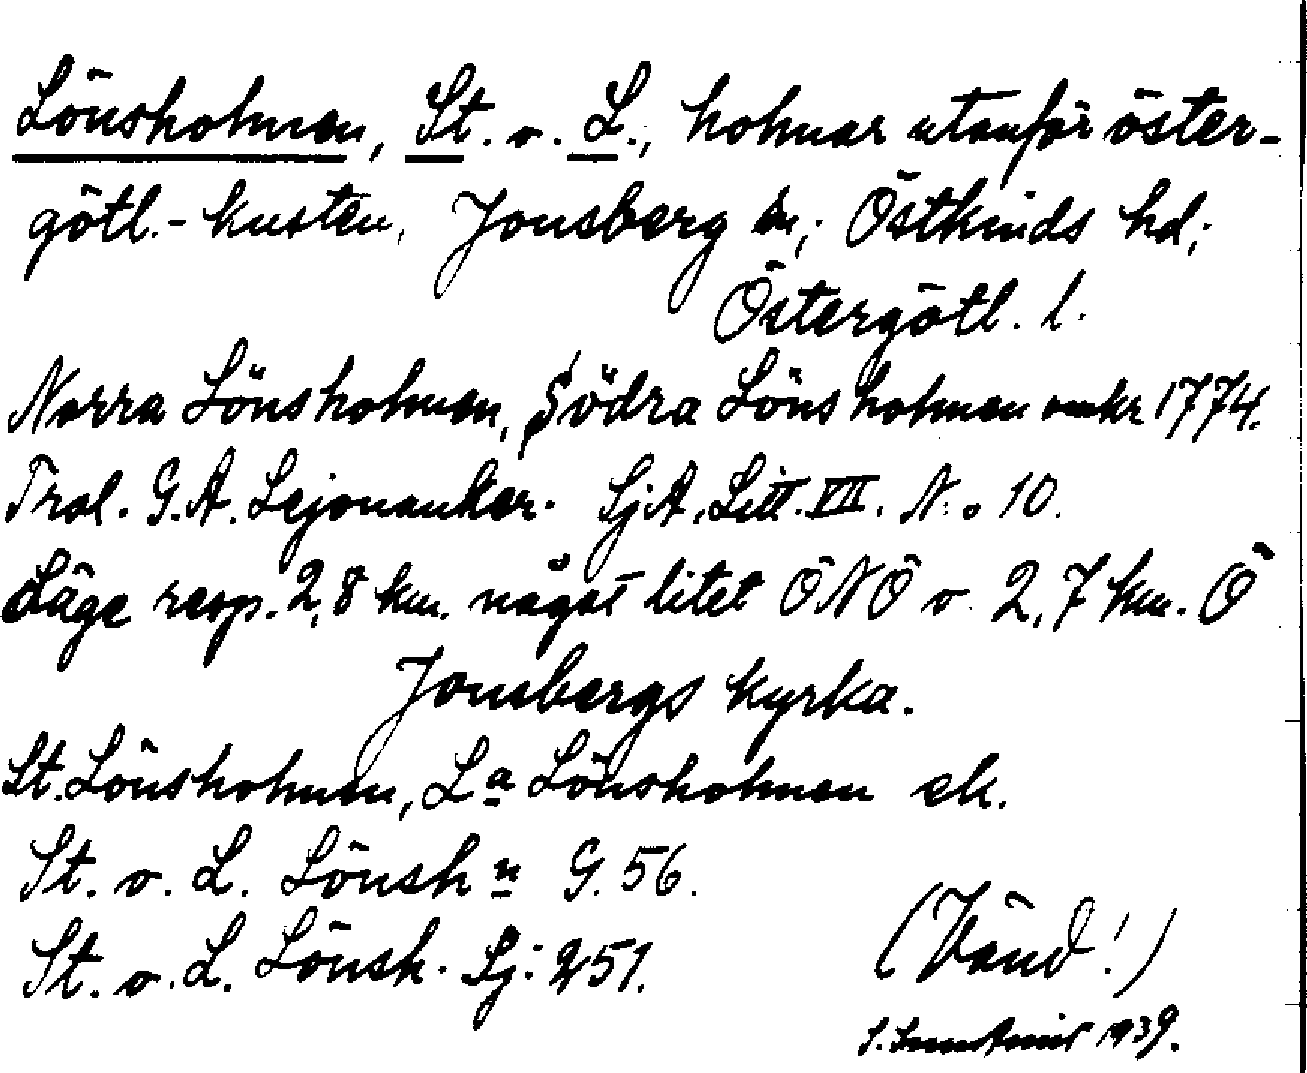 Lönsholmen, St. o. L., holmar utanför öster-
götl.-kusten, Jonsberg sn; Östkinds hd;
Östergötl. l.
Norra Lönsholmen, Södra Lönsholmen omkr 1774.
Trol. G. A. Lejonanker. SjA, Litt. VII. N:o 10.
Läge resp. 2,8 km. något litet ÖNÖ o. 2,7 km. Ö
Jonsbergs kyrka.
St. Lönsholmen, La Lönsholmen ek.
St. o. L. Lönshn G. 56.
St. o. L. Lönsh. Sj: 251.
(Vänd!)
1939.